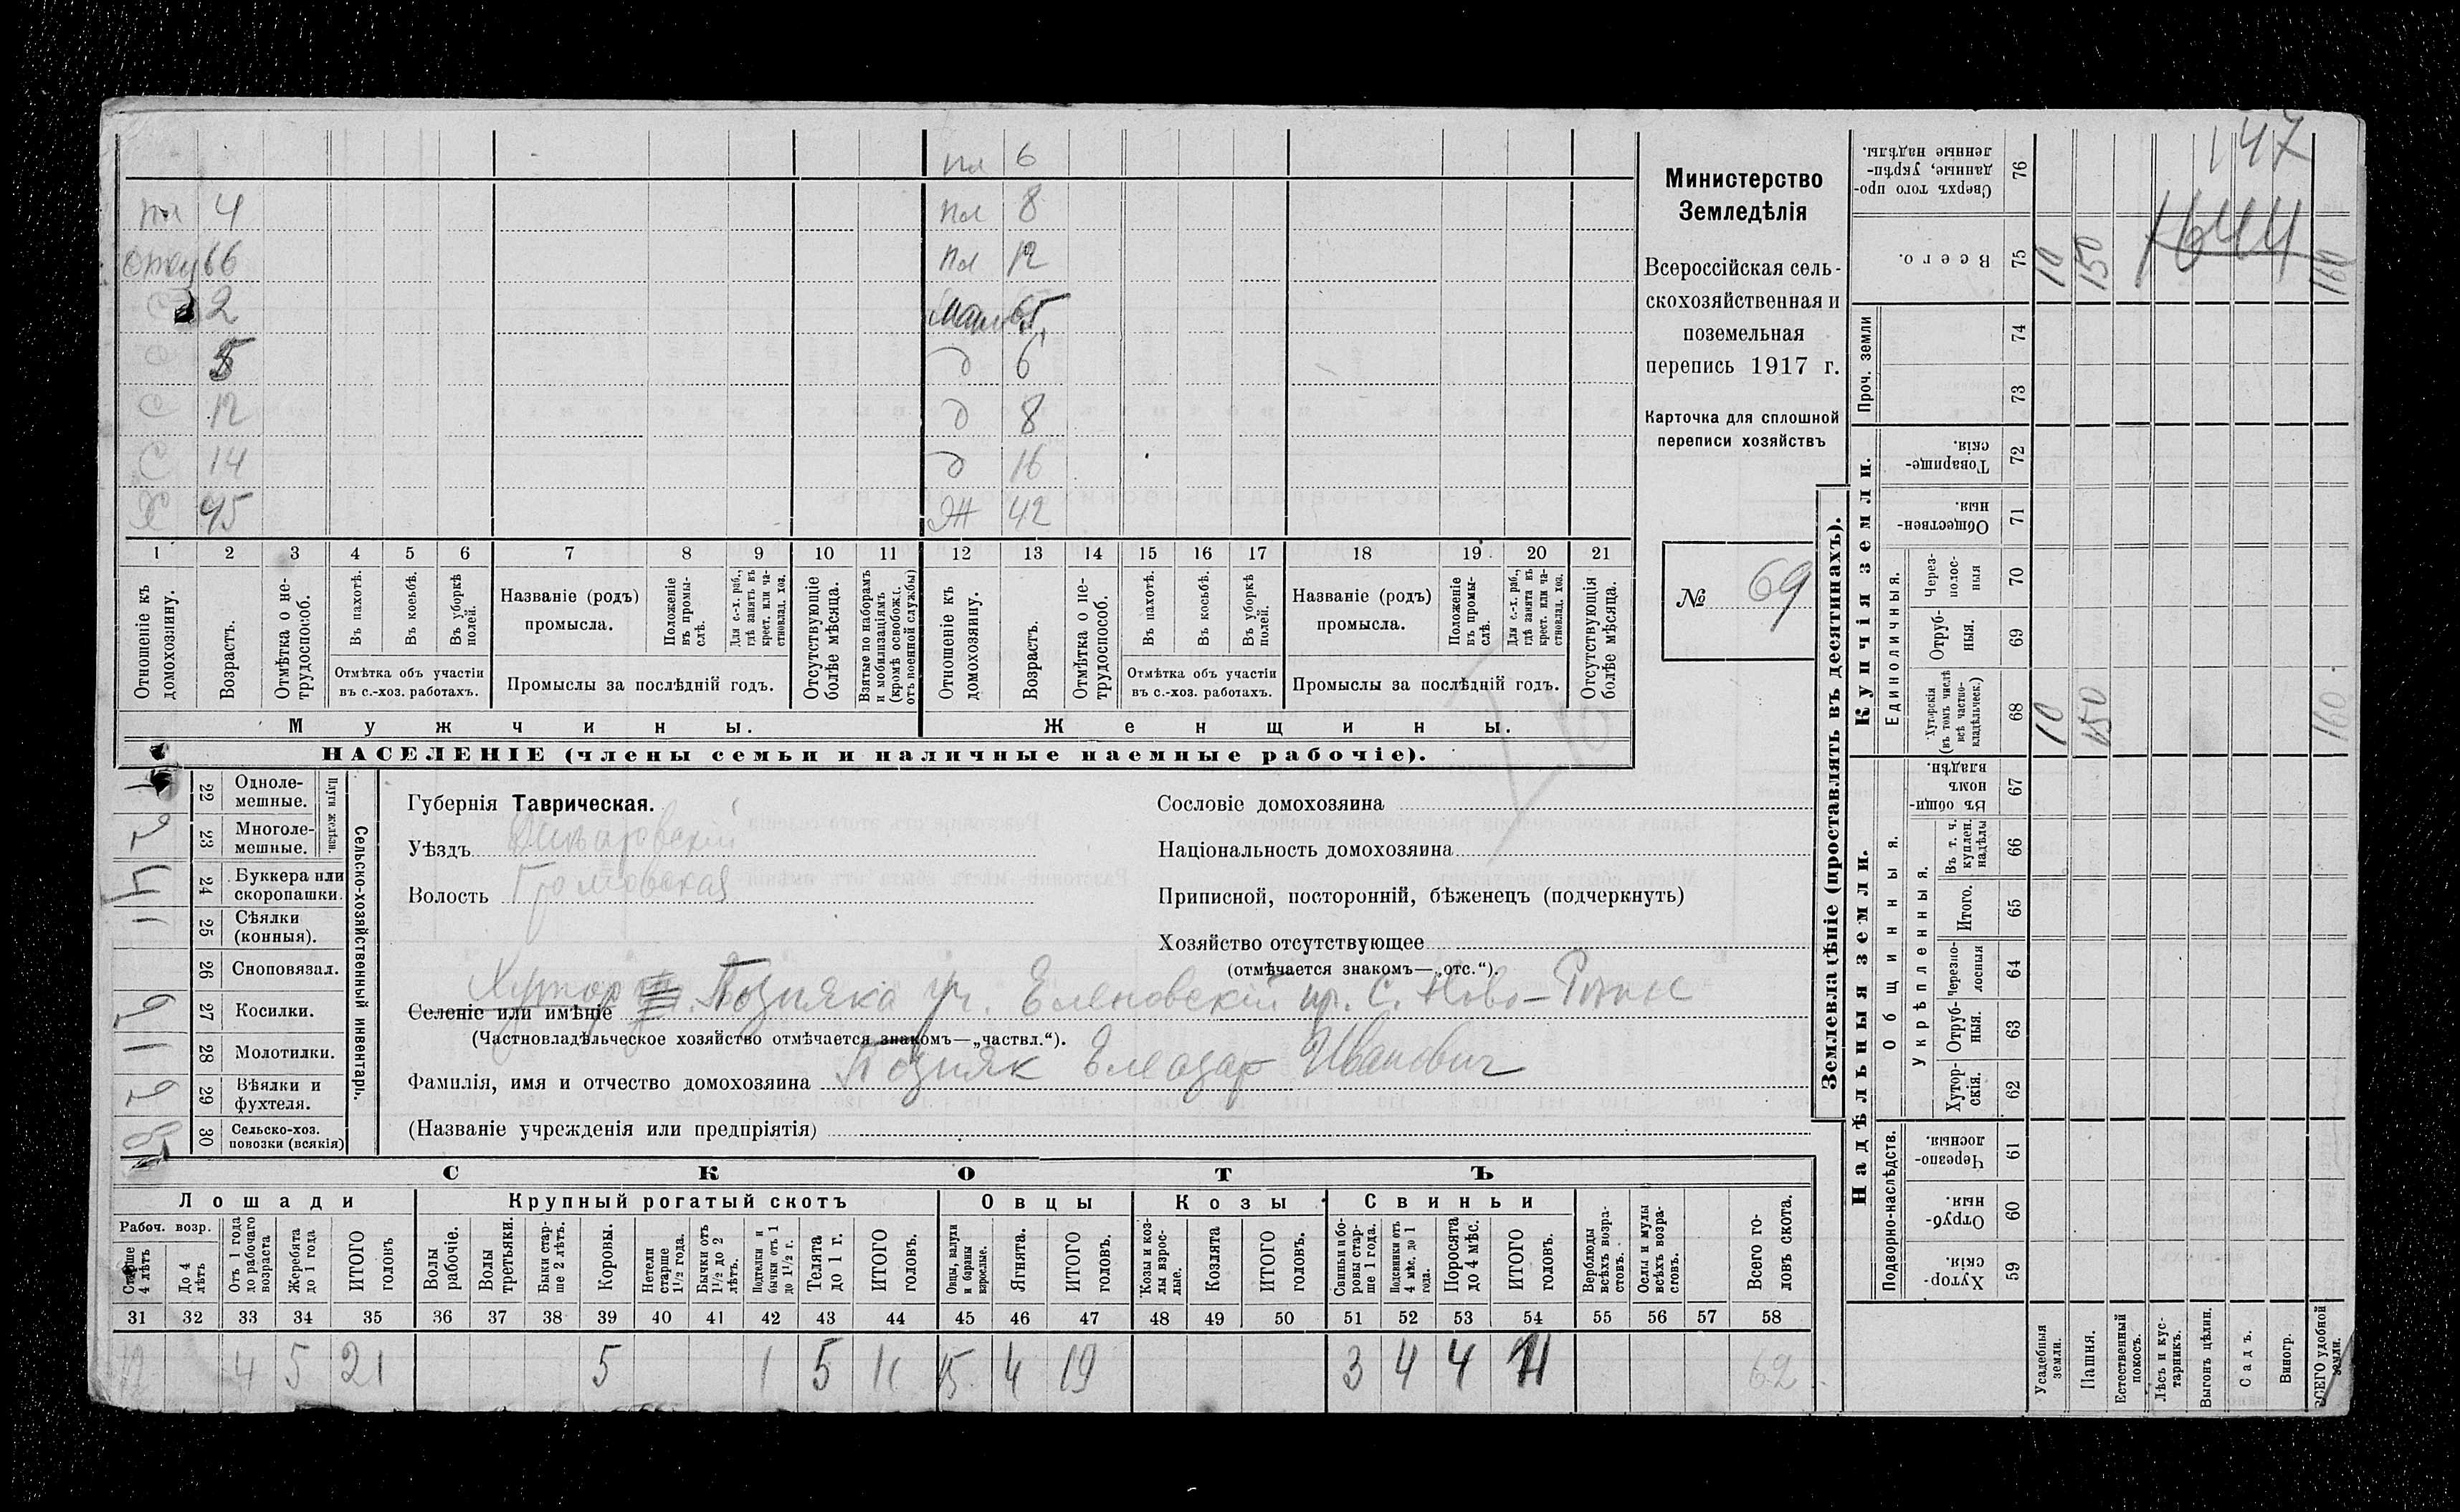 147
1644
пл 6
пл 4 пл 8
отец 66 пл 12
с 2 мать 65
5 д 6
с 12 д 8
с 14 д 16
Х 45 Ж 42
1 2 3 4 5 6 7 8 9 10 11 12 13 14 15 16 17 18 19 20 21
Отношеніе къ домохозяину.
Возрастъ.
Отмѣтка о не-трудоспособ.
Въ пахотѣ.
Въ косьбѣ.
Въ уборкѣ полей.
Отмѣтка объ участіи въ с.-хоз. работахъ.
Названіе (родъ) промысла.
Положеніе въ промы-слѣ.
Для с.-х. раб., гдѣ занятъ въ крест. или ча-стновлад. хоз.
Промыслы за послѣдній годъ.
Отсутствующіе болѣе мѣсяца.
Взятые по наборамъ и мобилизаціямъ (кромѣ освобожд. отъ военной службы)
Отношеніе къ домохозяину.
Возрастъ.
Отмѣтка о не-трудоспособ.
Въ пахотѣ.
Въ косьбѣ.
Въ уборкѣ полей.
Отмѣтка объ участіи въ с.-хоз. работахъ.
Названіе (родъ) промысла.
Положеніе въ промы-слѣ.
Для с.-х. раб., гдѣ занята въ крест. или ча-стновлад. хоз.
Промыслы за послѣдній годъ.
Отсутствующія болѣе мѣсяца.
Мужчины. Женщины.
НАСЕЛЕНІЕ (члены семьи и наличные наемные рабочіе).
Министерство
Земледѣлія
Всероссійская сель-
скохозяйственная и
поземельная
перепись 1917 г.
Карточка для сплошной
переписи хозяйствъ
№ 69
Сельско-хозяйственный инвентарь.
Плуги желѣзн.
22 Одноле-мешные. 1
23 Многоле-мешные. 2
24 Буккера или скоропашки.
25 Сѣялки (конныя). 1
26 Сноповязал.
27 Косилки. 2
28 Молотилки. 1
29 Вѣялки и фухтеля. 2
30 Сельско-хоз. повозки (всякія)
Губернія Таврическая.
Уѣздъ Днѣпровскій
Волость Громовская
Селеніе или имѣніе Хутор Позняка гр. Еленовскій пр. С. Ново-
(Частновладѣльческое хозяйство отмѣчается знакомъ—„частвл.“).
Фамилія, имя и отчество домохозяина Позняк Елеазар Иванович
(Названіе учрежденія или предпріятія)
Сословіе домохозяина
Національность домохозяина
Приписной, посторонній, бѣженецъ (подчеркнуть)
Хозяйство отсутствующее
(отмѣчается знакомъ—„отс.“).
СКОТЪ
Лошади Крупный рогатый скотъ Овцы Козы Свиньи
Рабоч. возр.
Старше 4 лѣтъ
До 4 лѣтъ
Отъ 1 года до рабочаго возраста
Жеребята до 1 года
ИТОГО головъ
Волы рабочіе.
Волы третьяки.
Быки стар-ше 2 лѣтъ.
Коровы.
Нетели старше 1½ года.
Бычки отъ 1½ до 2 лѣтъ.
Подтелки и бычки отъ 1 до 1½ г.
Телята до 1 г.
ИТОГО головъ.
Овцы, валухи и бараны взрослые.
Ягнята.
ИТОГО головъ.
Козы и коз-лы взрос-лые.
Козлята
ИТОГО головъ.
Свиньи и бо-ровы стар-ше 1 года.
Подсвинки отъ 4 мѣс. до 1 года.
Поросята до 4 мѣс.
ИТОГО головъ.
Верблюды всѣхъ возра-стовъ.
Ослы и мулы всѣхъ возра-стовъ.
Всего го-ловъ скота.
31 32 33 34 35 36 37 38 39 40 41 42 43 44 45 46 47 48 49 50 51 52 53 54 55 56 57 58
12 4 5 21 5 1 5 11 15 4 19 3 4 4 11 62
Землевладѣніе (проставлять въ десятинахъ).
Купчія земли.
Проч. земли
Сверхъ того про-данные, укрѣп-ленные надѣлы. 76
Всего. 75 10 150 160
74
73
Товарище-скія. 72
Обществен-ныя. 71
Единоличныя.
Через-полос-ныя 70
Отруб-ныя. 69
Хуторскія (въ томъ числѣ всѣ частно-владѣльческ.) 68 10 150 160
Надѣльныя земли.
Общинныя.
Въ общи-номъ владѣн. 67
Укрѣпленныя.
Въ т. ч. куплен. надѣлы 66
Итого. 65
Черезпо-лосныя 64
Отруб-ныя. 63
Хутор-скія. 62
Подворно-наслѣдств.
Черезпо-лосныя. 61
Отруб-ныя. 60
Хутор-скія. 59
Усадебныя земли.
Пашня.
Естественный покосъ.
Лѣсъ и кус-тарникъ.
Выгонъ цѣлин.
Садъ.
Виногр.
ВСЕГО удобной земли.